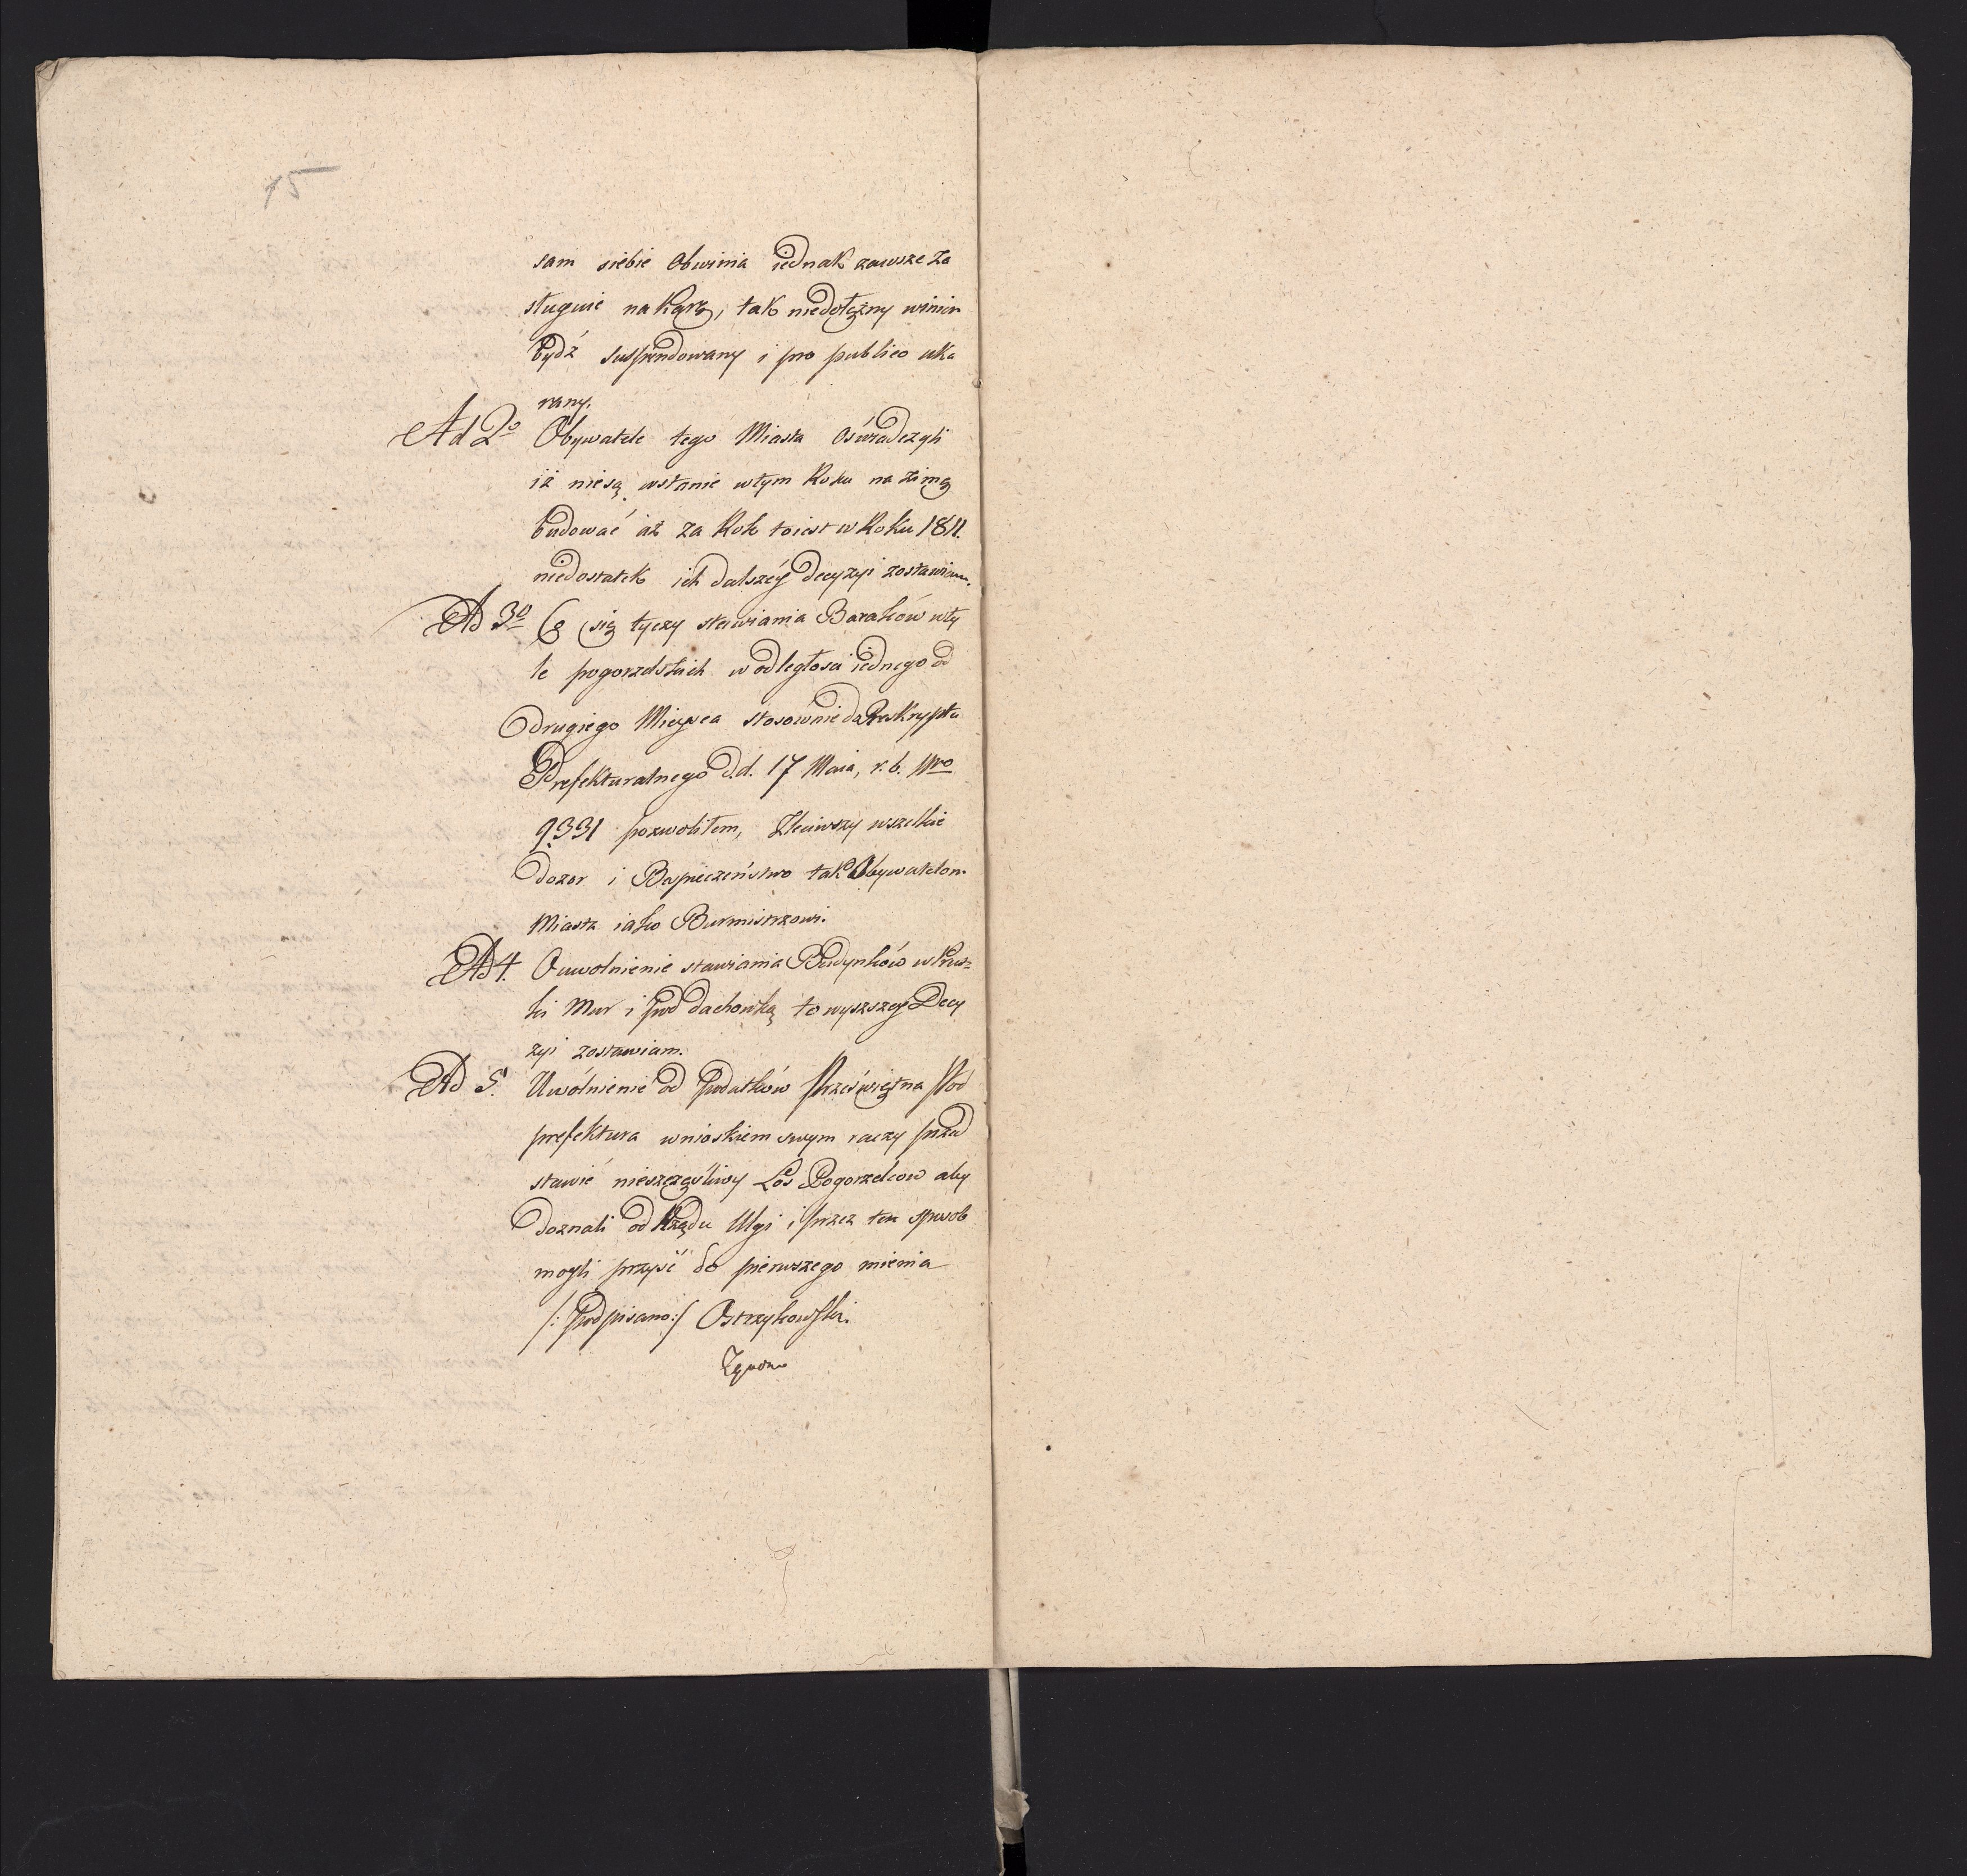 15
sam siebie Obwinia iednak zawsze za
sługuie na karę, tak niedołężny winien
bydź suspendowany i pro publico uka
rany.
Ad 2o Obywatele tego Miasta Oświadczyli
iż niesą wstanie wtym Roku na zimę
budować aż za Rok toiest w Roku 1811.
niedostatek ich dalszéy decyzyi zostawiam.
Ad 3o Co się tyczy stawiania Baraków wty
le pogorzelskich w odległosci iednego od
drugiego Mieysca stosownie do Reskryptu
Prefekturalnego d.d. 17 Maia, r. b. Nro
9331 pozwoliłem, Zleciwszy wszelkie
dozor i Bespieczeństwo tak Obywatelom
Miasta iako Burmistrzowi.
Ad 4. O uwolnienie stawiania Budynków w Prus=
ki Mur i pod dachowką to wyszszey Decy
zyi zostawiam.
Ad 5. Uwólnienie od Podatków Prześwietna Pod
prefektura wnioskiem swym raczy przed
stawić nieszczęśliwy Los Pogorzelcow aby
doznali od Rządu Ulgi i przez ten sposob
mogli przyść do pierwszego mienia
/: Podpisano :/ Ostrzykowski.